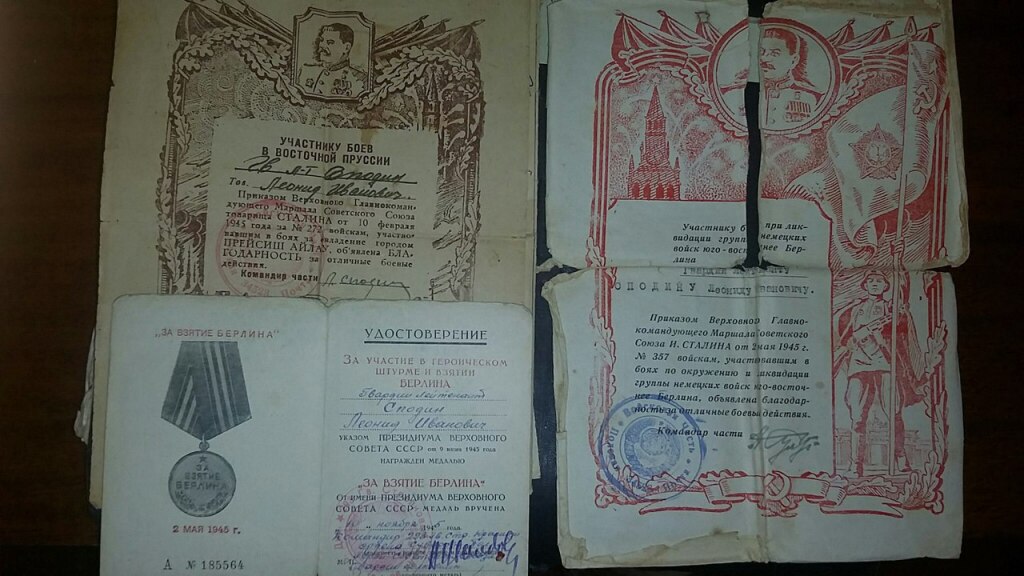 УЧАСТНИКУ БОЕВ
В ВОСТОЧНОЙ ПРУССИИ
Гв л-т Сподин
Тов. Леонид Иванович.
Приказом Верховного Главнокоман-
дующего Маршала Советского Союза
товарища СТАЛИНА от 10 февраля
1945 года за № 272 войскам, участво-
вавшим в боях за овладение городом
ПРЕЙСИШ АЙЛАУ, объявлена БЛА-
ГОДАРНОСТЬ за отличные боевые
действия.
Командир части
„ЗА ВЗЯТИЕ БЕРЛИНА"
ЗА
ВЗЯТИЕ
БЕРЛИНА
2 МАЯ 1945 г.
А № 185564
УДОСТОВЕРЕНИЕ
ЗА УЧАСТИЕ В ГЕРОИЧЕСКОМ
ШТУРМЕ И ВЗЯТИИ
БЕРЛИНА
Гвардии лейтенант
Сподин
Леонид Иванович
УКАЗОМ ПРЕЗИДИУМА ВЕРХОВНОГО
СОВЕТА СССР от 9 июня 1945 года
НАГРАЖДЕН МЕДАЛЬЮ
„ЗА ВЗЯТИЕ БЕРЛИНА"
ОТ ИМЕНИ ПРЕЗИДИУМА ВЕРХОВНОГО
СОВЕТА СССР МЕДАЛЬ ВРУЧЕНА
ноября 1945 года
Командир
Участнику при лик-
видации группы немецких
войск юго-восточнее Бер-
лина
СПОДИНУ Леониду Ивановичу.
Приказом Верховного Главно-
командующего Маршала Советского
Союза И. СТАЛИНА от 2 мая 1945 г.
№ 357 войскам, участвовавшим в
боях по окружению и ликвидации
группы немецких войск юго-восточ-
нее Берлина, объявлена благодар-
ность за отличные боевые действия.
Командир части